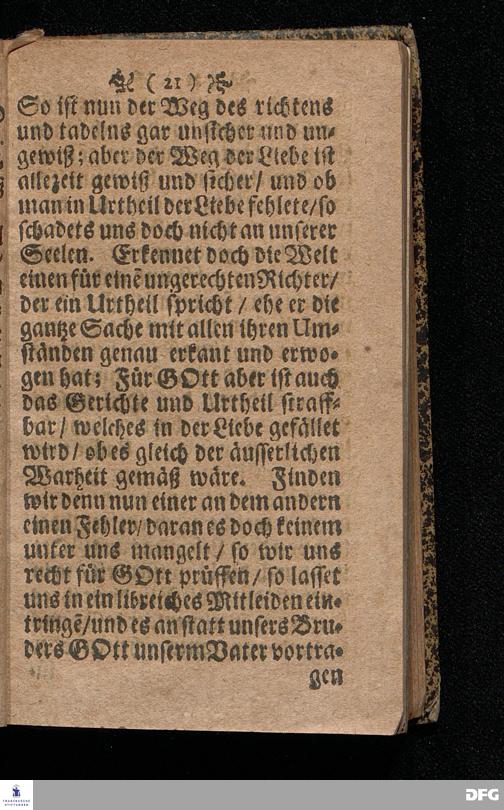 ( 21 )
So ist nun der Weg des richtens
und tadelns gar unsicher und un-
gewiß; aber der Weg der Liebe ist
allezeit gewiß und sicher/ und ob
man in Urtheil der Liebe fehlete/ so
schadets uns doch nicht an unserer
Seelen. Erkennet doch die Welt
einen für einē ungerechten Richter/
der ein Urtheil spricht / ehe er die
gantze Sache mit allen ihren Um-
ständen genau erkant und erwo-
gen hat; Für GOtt aber ist auch
das Gerichte und Urtheil straff-
bar/ welches in der Liebe gefället
wird/ ob es gleich der äusserlichen
Warheit gemäß wäre. Finden
wir denn nun einer an dem andern
einen Fehler/ daran es doch keinem
unter uns mangelt / so wir uns
recht für GOtt prüffen/ so lasset
uns in ein libreiches Mitleiden ein-
tringē/ und es an statt unsers Bru-
ders GOtt unserm Vater vortra-
gen
FRANCKESCHE
STIFTUNGEN
DFG